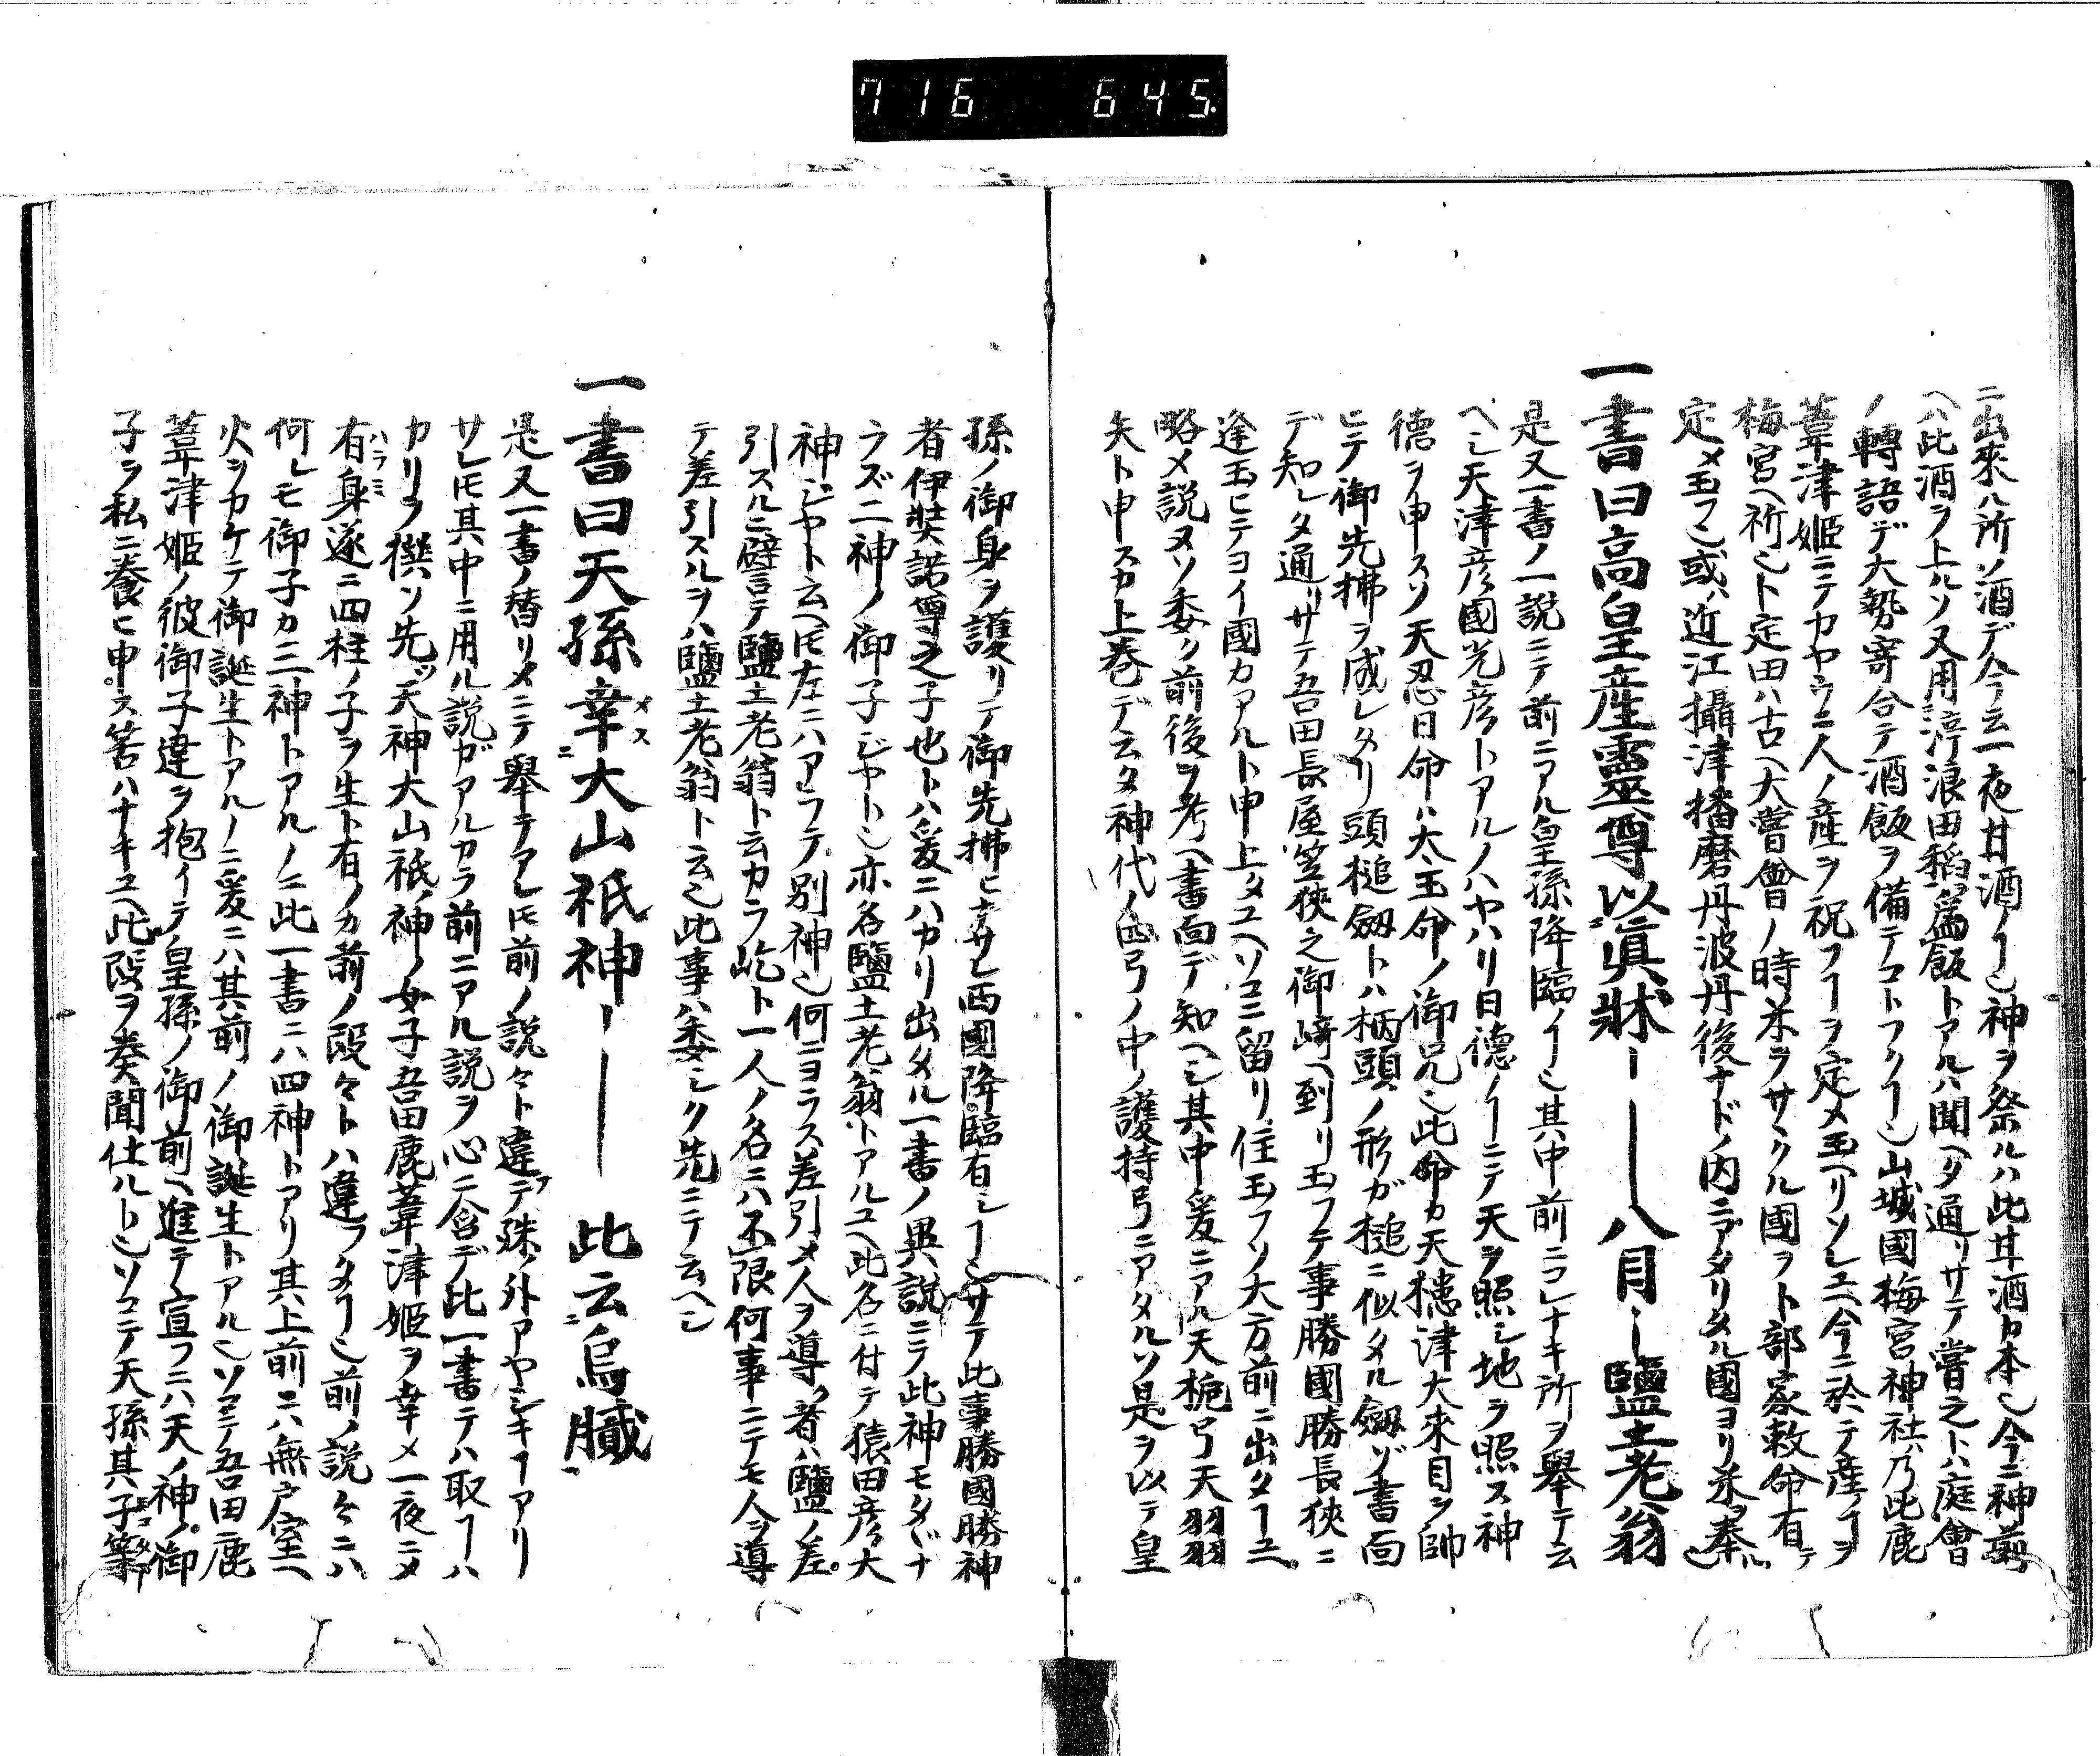 716 645
ニ出來ル所ノ酒デ今云一夜甘酒ノヿ也神ヲ祭ルハ此甘酒カ本也今ニ神前
ヘハ此酒ヲ上ルソ又用渟浪田稲爲飯トアルハ聞ヘタ通リサテ嘗之トハ庭會
ノ轉語デ大勢寄合テ酒飯ヲ備テコトフクヿ也山城國梅宮神社ハ乃此鹿
葦津姫ニテカヤウニ人ノ産ヲ祝フヿヲ定メ玉ヘリソレユヘ今ニ於テ産ノヿヲ
梅宮ヘ祈也ト定田ハ古ヘ大嘗會ノ時米ヲサヽクル國ヲト部家敕命有テ
定メ玉フ也或ハ近江攝津播磨丹波丹後ナドノ内ニアタリタル國ヨリ米ヲ奉ル也
一書曰高皇産靈尊以眞牀ーー八月ー鹽土老翁
是又一書ノ一説ニテ前ニアル皇孫降臨ノヿ也其中前ニコレナキ所ヲ擧テ云
ヘシ天津彦國光彦トアルノハヤハリ日德ノヿニテ天ヲ照シ地ヲ照ス神
德ヲ申スソ天忍日命ハ大玉命ノ御兄也此命カ天槵津大來目ヲ帥
ヒテ御先拂ヲ成レタリ頭槌劔トハ柄頭ノ形ガ槌ニ似タル劔ゾ書面
デ知レタ通リサテ吾田長屋笠狹之御﨑ヘ到リ玉フテ事勝國勝長狹ニ
逢玉ヒテヨイ國カアルト申上タユヘソコニ留リ住玉フソ大方前ニ出タヿユヘ
略メ説ヌソ委ク前後ヲ考ヘ書面デ知ヘシ其中爰ニアル天梔弓天羽羽
矢ト申スカ上巻デ云タ神代ノ四弓ノ中ノ護持弓ニアタルソ是ヲ以テ皇
孫ノ御身ヲ護リテ御先拂ヒナサレ西國降臨有シヿ也サテ此事勝國勝神
者伊奘諾尊之子也トハ爰ニハカリ出タル一書ノ異説ニテ此神モタヾナ
ラズ二神ノ御子ジヤト也亦名鹽土老翁トアルユヘ此名ニ付テ猿田彦大
神ジヤト云ヘ𪜈左ニハアラフテ別神也何ニヨラス差引メ人ヲ導ク者ハ鹽ノ差
引スルニ譬言テ鹽土老翁ト云カラ屹ト一人ノ名ニハ不限何事ニテモ人ヲ導
テ差引スルヲハ鹽土老翁ト云也此事ハ委シク先ニテ云ヘシ
一書曰天孫幸大山祇神ーー此云烏膱
是又一書ノ替リメニテ擧テアレ𪜈前ノ説々ト違テ殊ノ外アヤシキヿアリ
サレ𪜈其中ニ用ル説ガアルカラ前ニアル説ヲ心ニ含デ此一書テハ取ヿハ
カリヲ撰ソ先ツ天神大山祇ノ神ノ女子吾田鹿葦津姫ヲ幸メ一夜ニメ
有身遂ニ四柱ノ子ヲ生ト有ノカ前ノ段々トハ違フタヿ也前ノ説々ニハ
何レモ御子カ三神トアルノニ此一書ニハ四神トアリ其上前ニハ無戸室ヘ
火ヲカケテ御誕生トアルノニ爰ニハ其前ノ御誕生トアル也ソコテ吾田鹿
葦津姫ノ彼御子達ヲ抱イテ皇孫ノ御前ヘ進テ宣フニハ天ノ神ノ御
子ヲ私ニ養ヒ申ス筈ハナキユヘ此段ヲ奏聞仕ルト也ソコテ天孫其子等